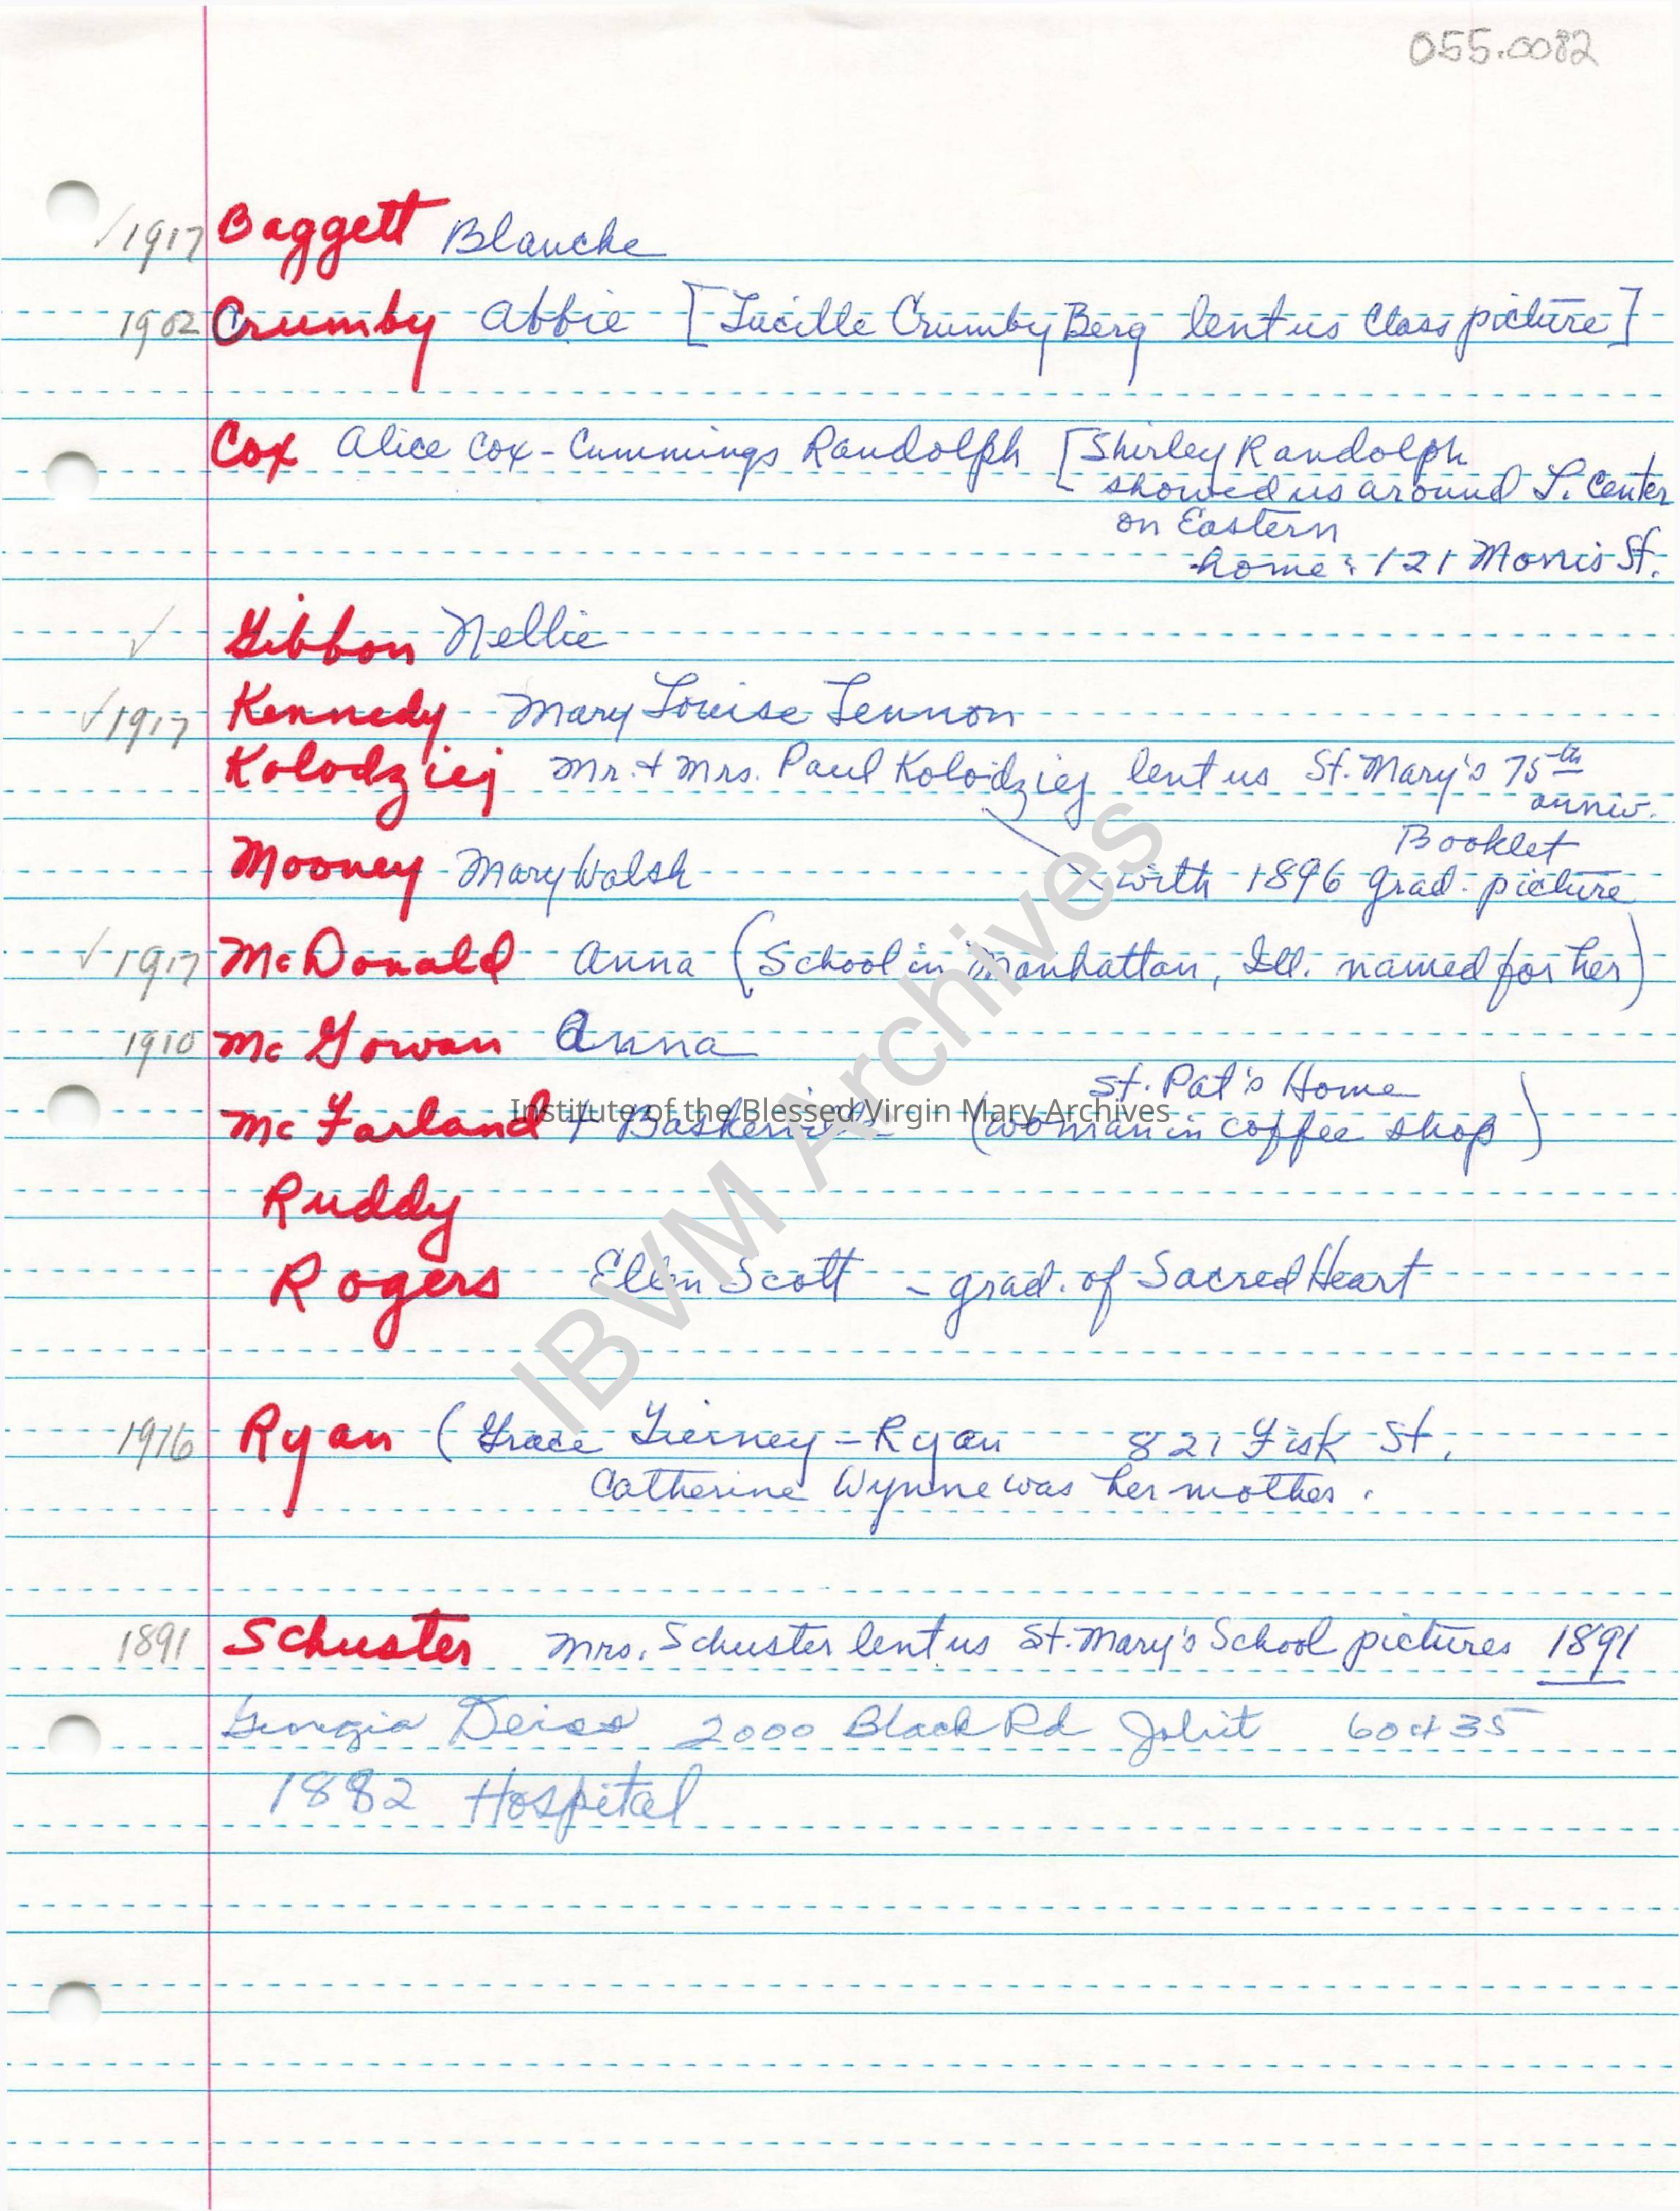 055.0082
✓1917 Baggett Blanche
1902 Crumby Abbie [Lucille Crumby Berg lent us Class picture]
Cox Alice Cox-Cummings Randolph [Shirley Randolph
showed us around L. Center
on Eastern
home: 121 Morris St.
✓ Gibbon Nellie
✓1917 Kennedy Mary Louise Lennon
Kolodziej Mr. + Mrs. Paul Kolodziej lent us St. Mary's 75th
anniv.
Booklet
Mooney Mary Walsh with 1896 grad. picture
✓1917 McDonald Anna (School in Manhattan, Ill. named for her)
1910 Mc Gowan Anna
St. Pat's Home
Mc Farland + (woman in coffee shop)
Institute of the Blessed Virgin Mary Archives
IBVM Archives
Ruddy
Rogers Ellen Scott - grad. of Sacred Heart
1916 Ryan (Grace Tierney-Ryan 821 Fisk St.
Catherine Wynne was her mother.
1891 Schuster Mrs. Schuster lent us St. Mary's School pictures 1891
Georgia Deiss 2000 Black Rd Joliet 60435
1882 Hospital